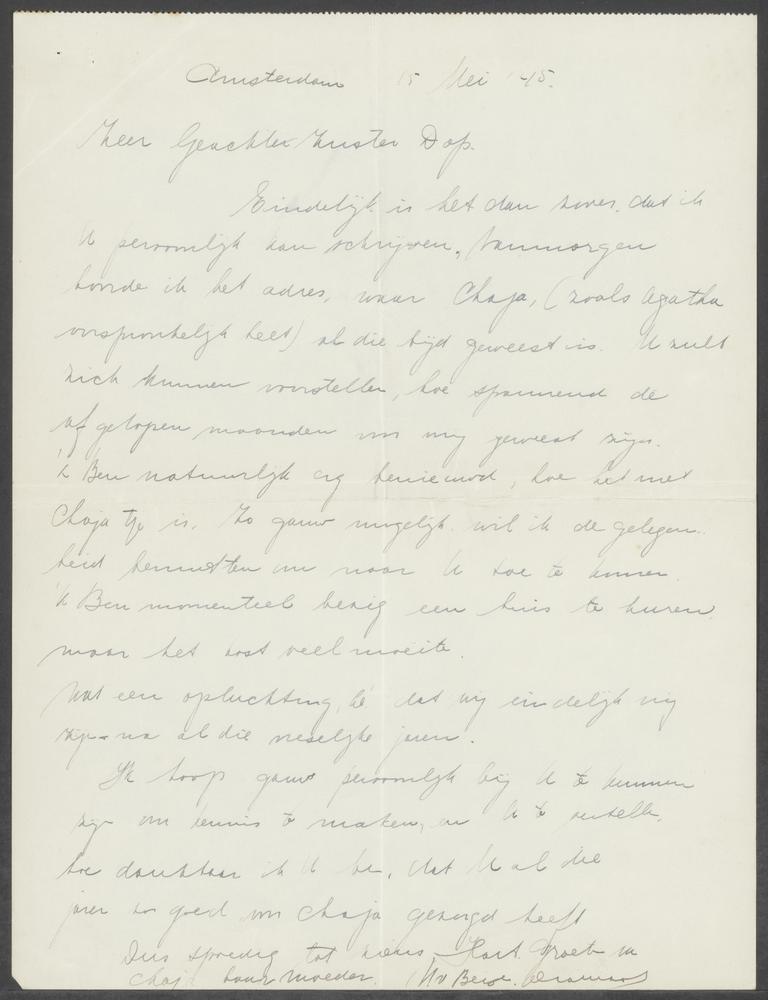 Amsterdam 15 Mei '45.
Zeer Geachte Zuster Dop.
Eindelijk is het dan zover, dat ik
U persoonlijk kan schrijven, Vanmorgen
hoorde ik het adres, waar Chaja, (zoals Agatha
oorspronkelijk heet) al die tijd geweest is. U zult
zich kunnen voorstellen, hoe spannend de
afgelopen maanden voor mij geweest zijn.
'k Ben natuurlijk erg benieuwd, hoe het met
Chajatje is. Zo gauw mogelijk wil ik de gelegen-
heid benutten om naar U toe te komen.
'k Ben momenteel bezig een huis te huren,
maar het kost veel moeite.
Wat een opluchting, hè dat wij eindelijk vrij
zijn na al die vreselijke jaren.
Ik hoop gauw persoonlijk bij U te kunnen
zijn om kennis te maken, en U te vertellen,
hoe dankbaar ik U ben, dat U al die
jaren zo goed voor Chaja gezorgd heeft
Dus spoedig tot ziens Hart. Groeten en
Chaja haar moeder.